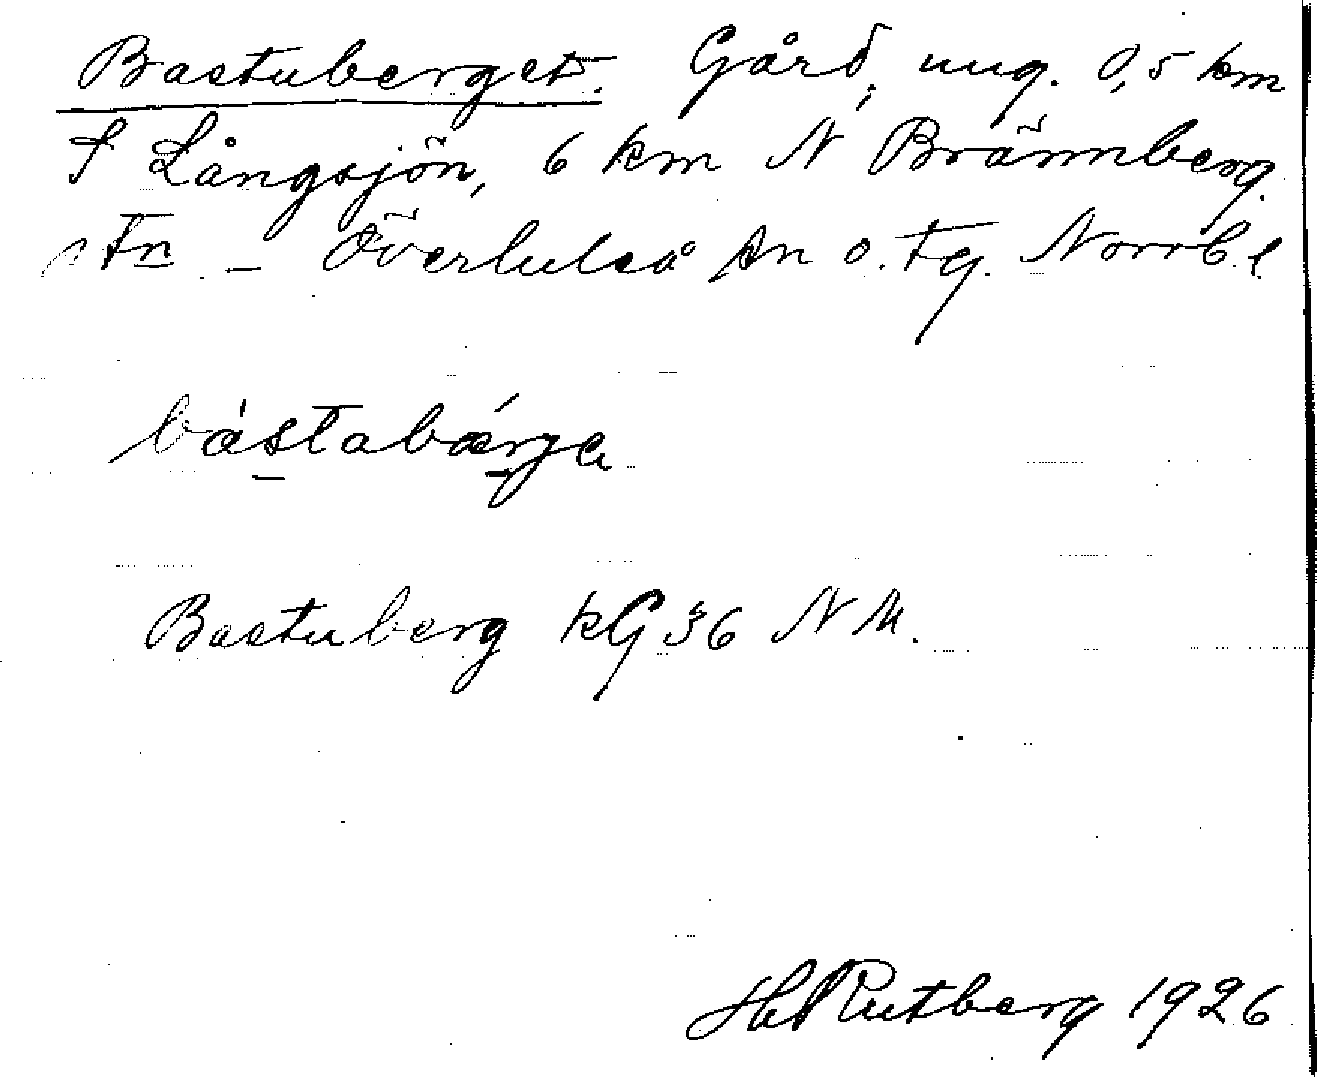 Bastuberget. Gård, ung. 0,5 km
S Långsjön, 6 km N Brännberg.
Fn – Överluleå sn o. tg. Norrb. l.
bàstabǽrjα
Bastuberg kG 36 NM.
Hj Rutberg 1926